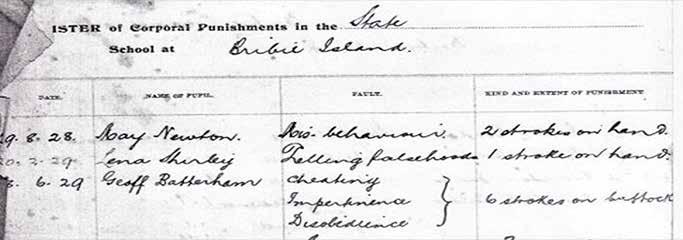 ISTER of Corporal Punishments in the State
School at Bribie Island.
DATE. NAME OF PUPIL. FAULT. KIND AND EXTENT OF PUNISHMENT
9. 8. 28. May Newton. Mis-behaviour. 2 strokes on hand.
20. 2. 29. Lena Shirley Telling falsehoods 1 stroke on hand.
3. 6. 29 Geoff Batterham Cheating
Impertinence 6 strokes on buttock
Disobidience